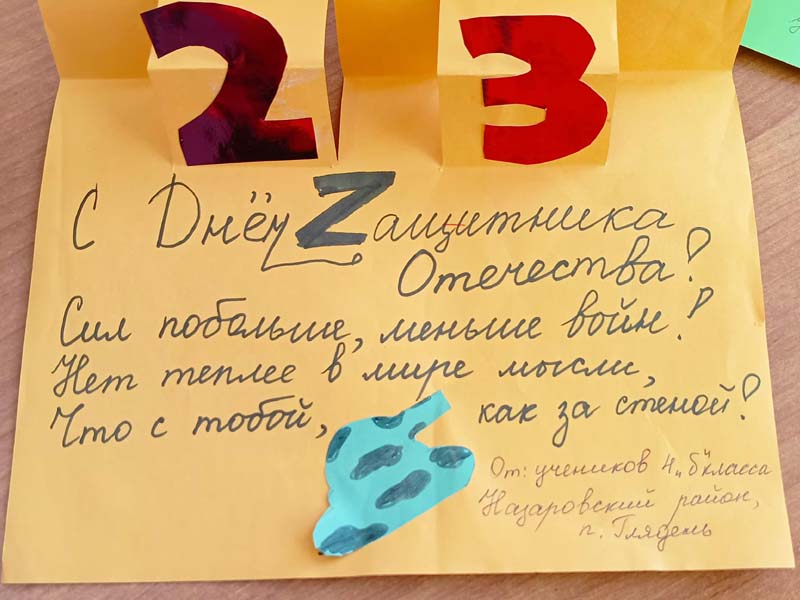 23
С Днём Zащитника
Отечества!
Сил побольше, меньше войн!
Нет теплее в мире мысли,
Что с тобой, как за стеной!
От: учеников 4 „Б" класса
Назаровский район,
п. Глядень